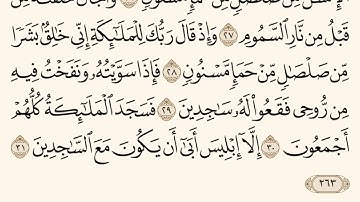 قَبْلُ مِن نَّارِ ٱلسَّمُومِ ٢٧ وَإِذْ قَالَ رَبُّكَ لِلْمَلَٰٓئِكَةِ إِنِّى خَٰلِقٌۢ بَشَرًا
مِّن صَلْصَٰلٍ مِّنْ حَمَإٍ مَّسْنُونٍ ٢٨ فَإِذَا سَوَّيْتُهُۥ وَنَفَخْتُ فِيهِ
مِن رُّوحِى فَقَعُوا۟ لَهُۥ سَٰجِدِينَ ٢٩ فَسَجَدَ ٱلْمَلَٰٓئِكَةُ كُلُّهُمْ
أَجْمَعُونَ ٣٠ إِلَّآ إِبْلِيسَ أَبَىٰٓ أَن يَكُونَ مَعَ ٱلسَّٰجِدِينَ ٣١
٢٦٣